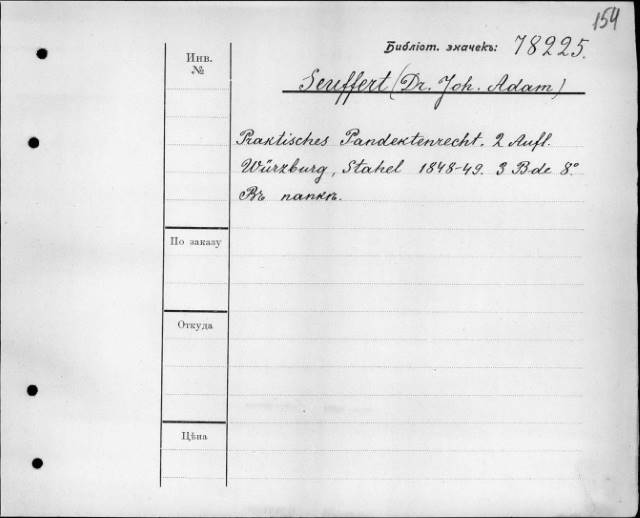 154
Библіот. значекъ: 78225.
Инв.
№
Seuffert (Dr. Joh. Adam)
Praktisches Pandektenrecht. 2 Aufl.
Würzburg, Stahel 1848-49. 3 Bde 8°.
Въ папкѣ.
По заказу
Откуда
Цѣна